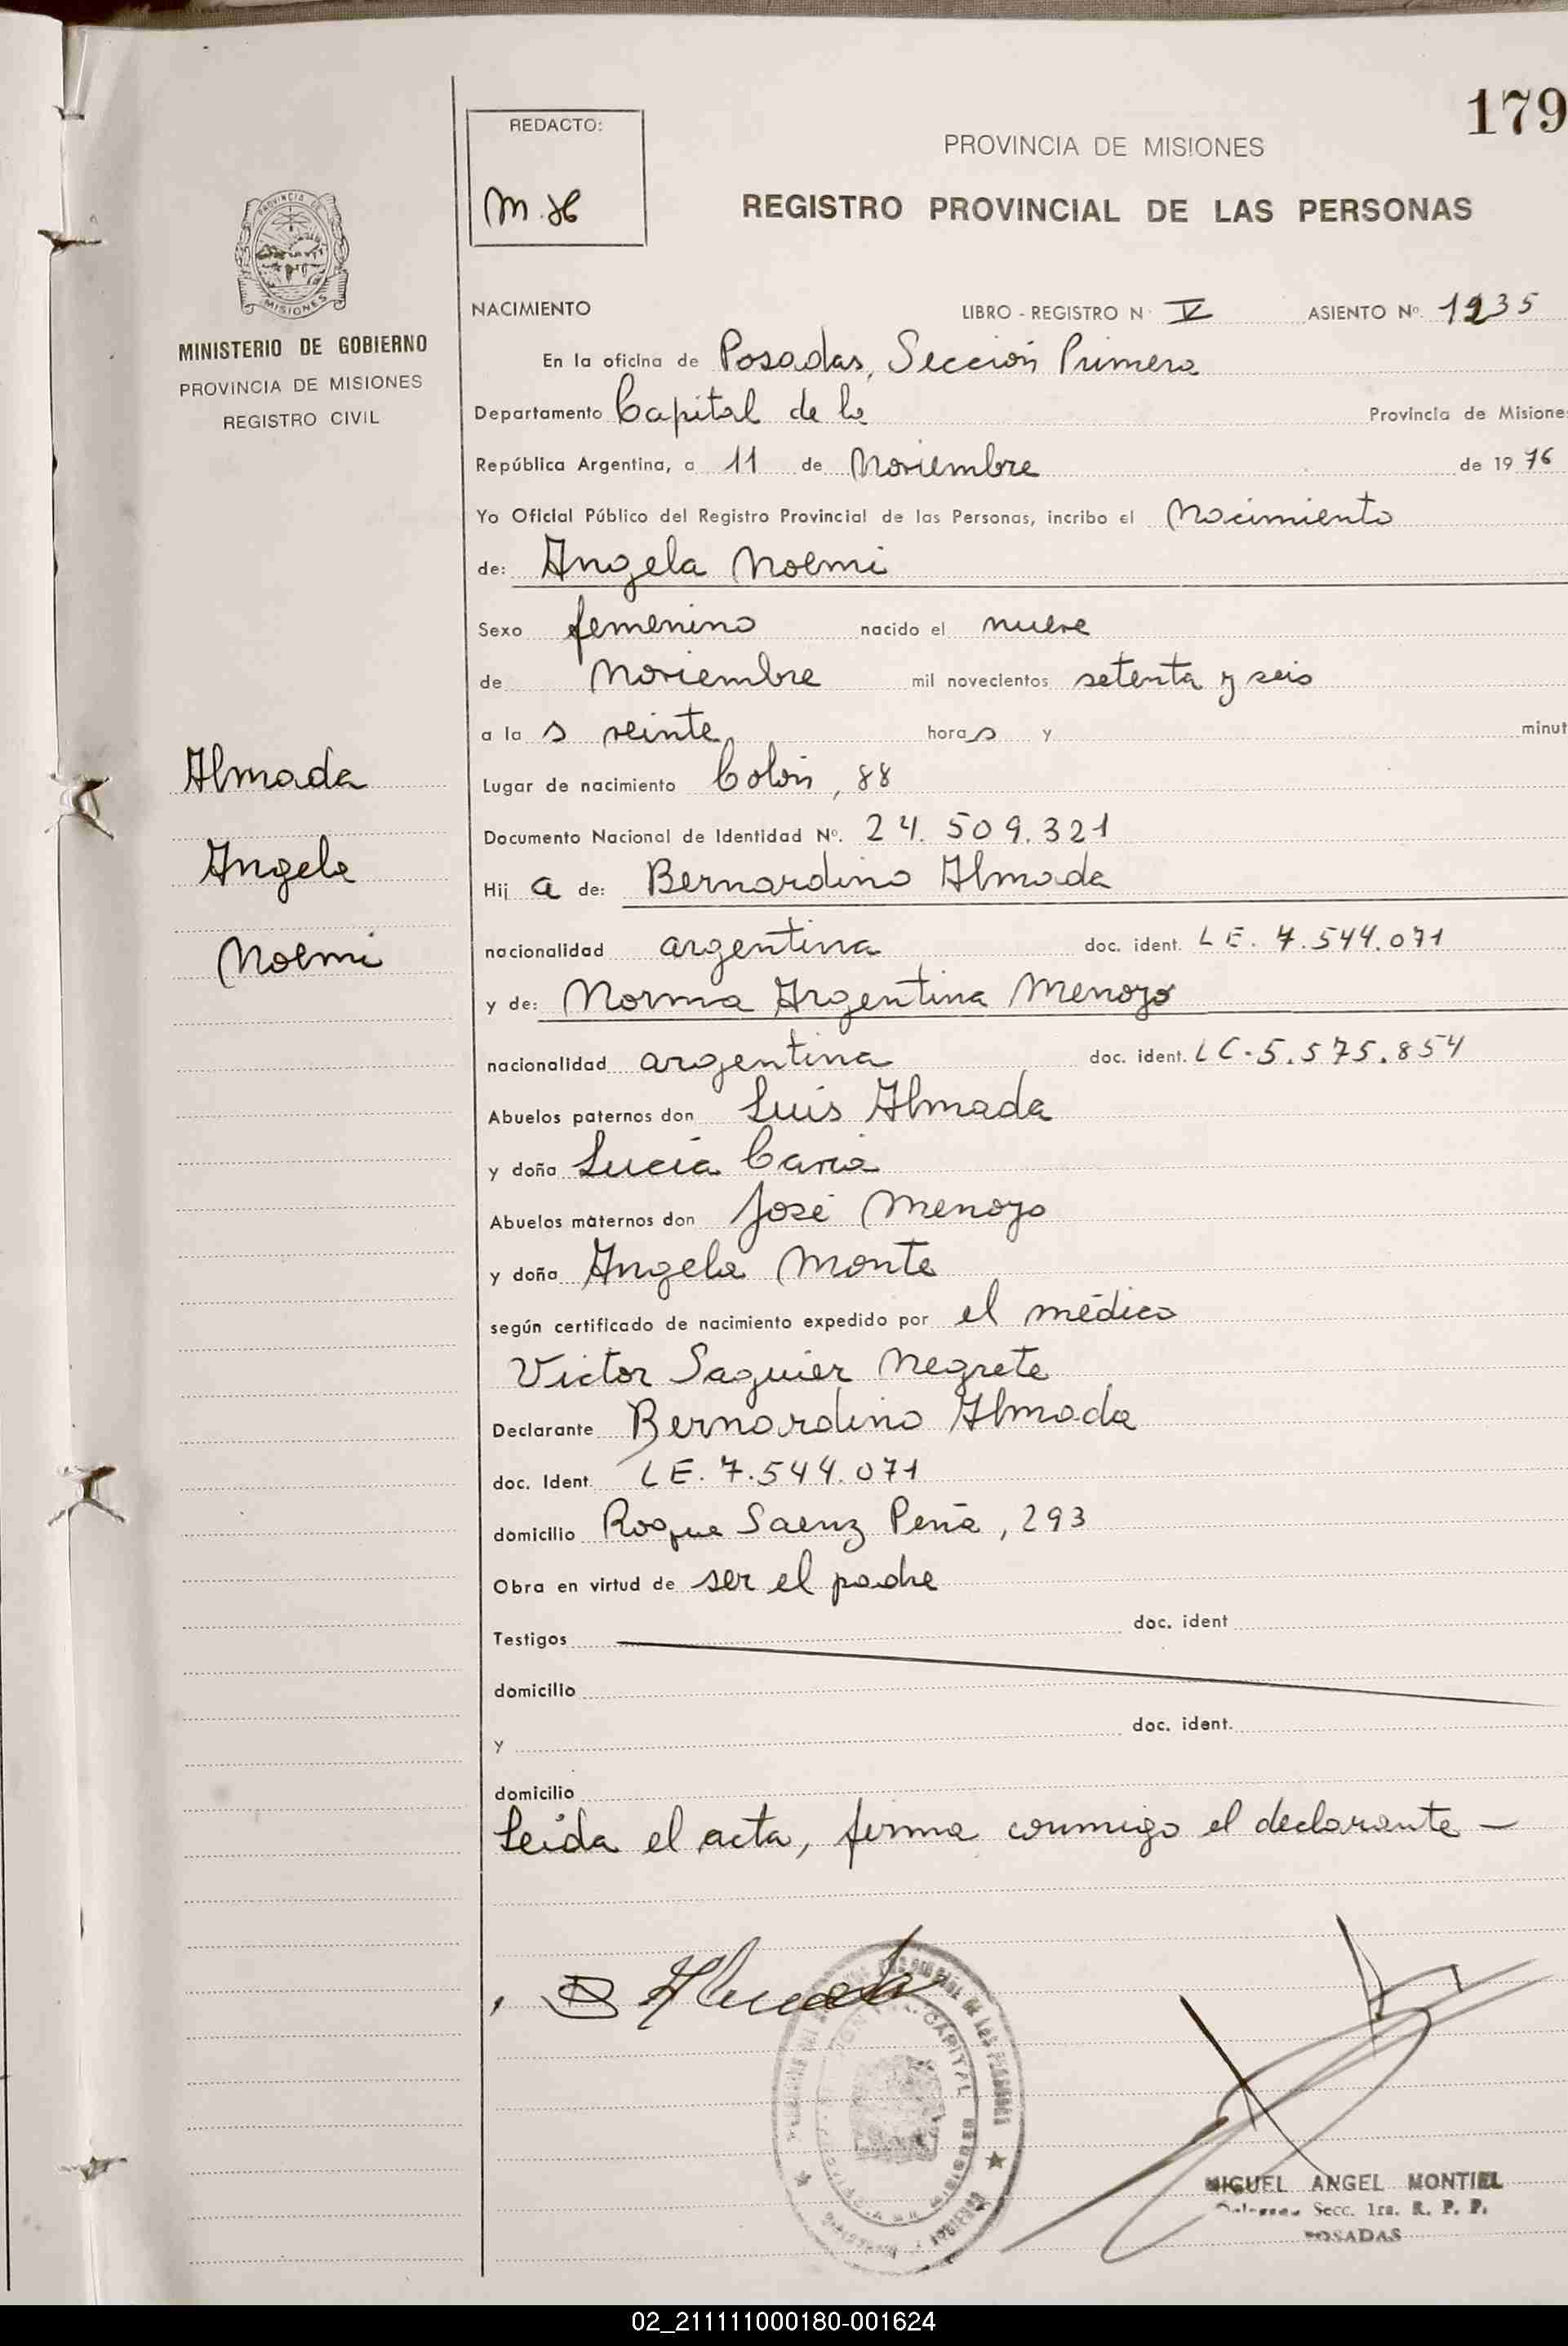 179
REDACTO:
M.H
PROVINCIA DE MISIONES
REGISTRO PROVINCIAL DE LAS PERSONAS
PROVINCIA DE
MISIONES
MINISTERIO DE GOBIERNO
PROVINCIA DE MISIONES
REGISTRO CIVIL
Almada
Angela
Noemi
NACIMIENTO LIBRO - REGISTRO N· V ASIENTO Nº. 1935
En la oficina de Posadas, Sección Primera
Departamento Capital de la Provincia de Misione
República Argentina, a 11 de Noviembre de 19 76
Yo Oficial Público del Registro Provincial de las Personas, incribo el Nacimiento
de: Angela Noemi
Sexo femenino nacido el nueve
de Noviembre mil novecientos setenta y seis
a la s veinte hora s y minut
Lugar de nacimiento Colón, 88
Documento Nacional de Identidad Nº. 24.509.321
Hij a de: Bernardino Almada
nacionalidad argentina doc. ident. LE. 7.544.071
y de: Norma Argentina Menoyo
nacionalidad argentina doc. ident. LC-5.575.854
Abuelos paternos don Luis Almada
y doña Lucía
Abuelos maternos don José Menoyo
y doña Angela Monte
según certificado de nacimiento expedido por el médico
Victor Saguier Negrete
Declarante Bernardino Almada
doc. Ident. LE. 7.544.071
domicilio Roque Saenz Peña, 293
Obra en virtud de ser el padre
Testigos doc. ident
domicilio
y doc. ident.
domicilio
Leída el acta, firma conmigo el declarante —
B Almada
CAPITAL
MIGUEL ANGEL MONTIEL
Secc. 1ra. R. P. P.
POSADAS
02_211111000180-001624